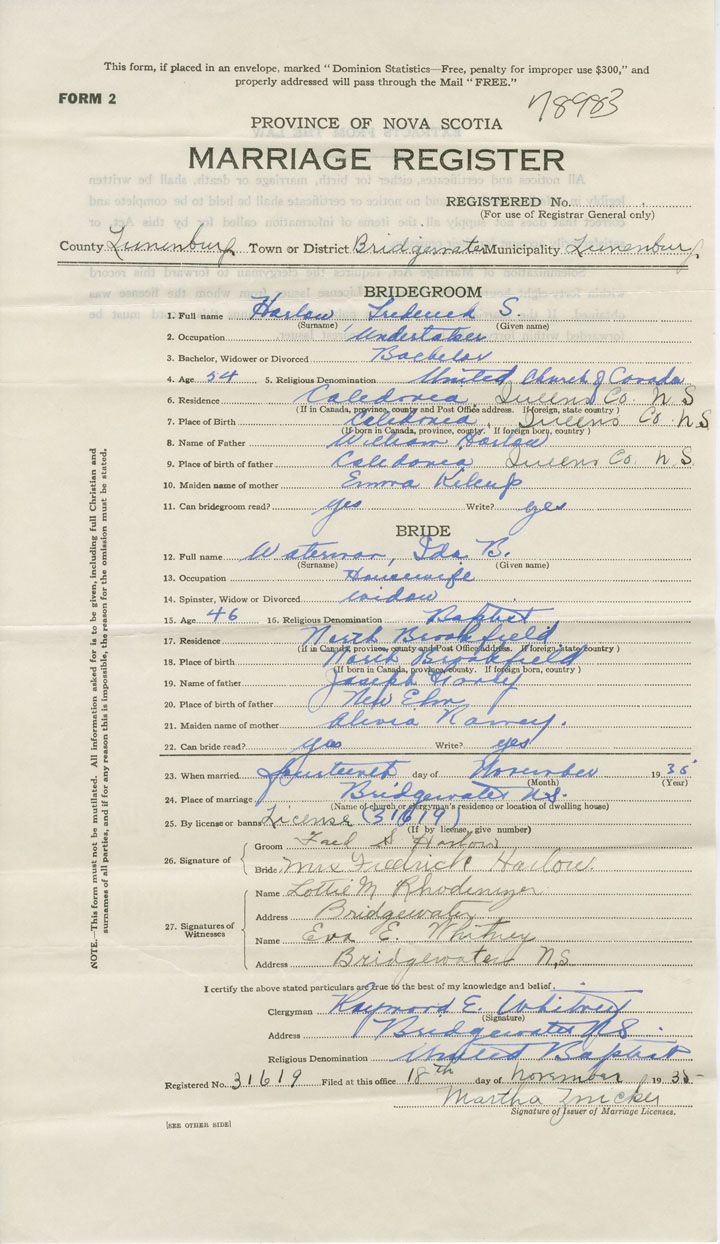 This form, if placed in an envelope, marked "Dominion Statistics—Free, penalty for improper use $300," and
properly addressed will pass through the Mail "FREE."
FORM 2
78983
PROVINCE OF NOVA SCOTIA
MARRIAGE REGISTER
REGISTERED No.
(For use of Registrar General only)
County Lunenburg Town or District Bridgewater Municipality Lunenburg
BRIDEGROOM
1. Full name Harlow, Frederick S.
(Surname) (Given name)
2. Occupation Undertaker
3. Bachelor, Widower or Divorced Bachelor
4. Age 54 5. Religious Denomination United Church of Canada
6. Residence Caledonia, Queens Co. N S
(If in Canada, province, county and Post Office address. If foreign, state country)
7. Place of Birth Caledonia, Queens Co. N S
(If born in Canada, province, county. If foreign born, country)
8. Name of Father William Harlow
9. Place of birth of father Caledonia Queens Co. N S.
10. Maiden name of mother Emma
11. Can bridegroom read? yes Write? yes
BRIDE
12. Full name Waterman, Ida B.
(Surname) (Given name)
13. Occupation Housewife
14. Spinster, Widow or Divorced widow
15. Age 46 16. Religious Denomination Baptist
17. Residence North Brookfield
(If in Canada, province, county and Post Office address. If foreign, state country)
18. Place of birth North Brookfield
(If born in Canada, province, county. If foreign born, country)
19. Name of father Joseph
20. Place of birth of father New Elm
21. Maiden name of mother Ramey.
22. Can bride read? yes Write? yes
23. When married fourteenth day of November 1935
(Month) (Year)
24. Place of marriage Bridgewater N.S.
(Name of church or clergyman's residence or location of dwelling house)
25. By license or banns License (31619)
(If by license, give number)
26. Signature of
Groom Fred S Harlow
Bride Mrs Fredrick Harlow.
27. Signatures of Witnesses
Name Lottie M Rhodenizer
Address Bridgewater
Name Eva E. Whitney
Address Bridgewater N.S.
I certify the above stated particulars are true to the best of my knowledge and belief.
Clergyman Raymond E. Whitney
(Signature)
Address Bridgewater N.S.
Religious Denomination United Baptist
Registered No. 31619 Filed at this office 18th day of November 1935
Martha Zwicker
Signature of Issuer of Marriage Licenses.
[SEE OTHER SIDE]
NOTE.—This form must not be mutilated. All information asked for is to be given, including full Christian and
surnames of all parties, and if for any reason this is impossible, the reason for the omission must be stated.